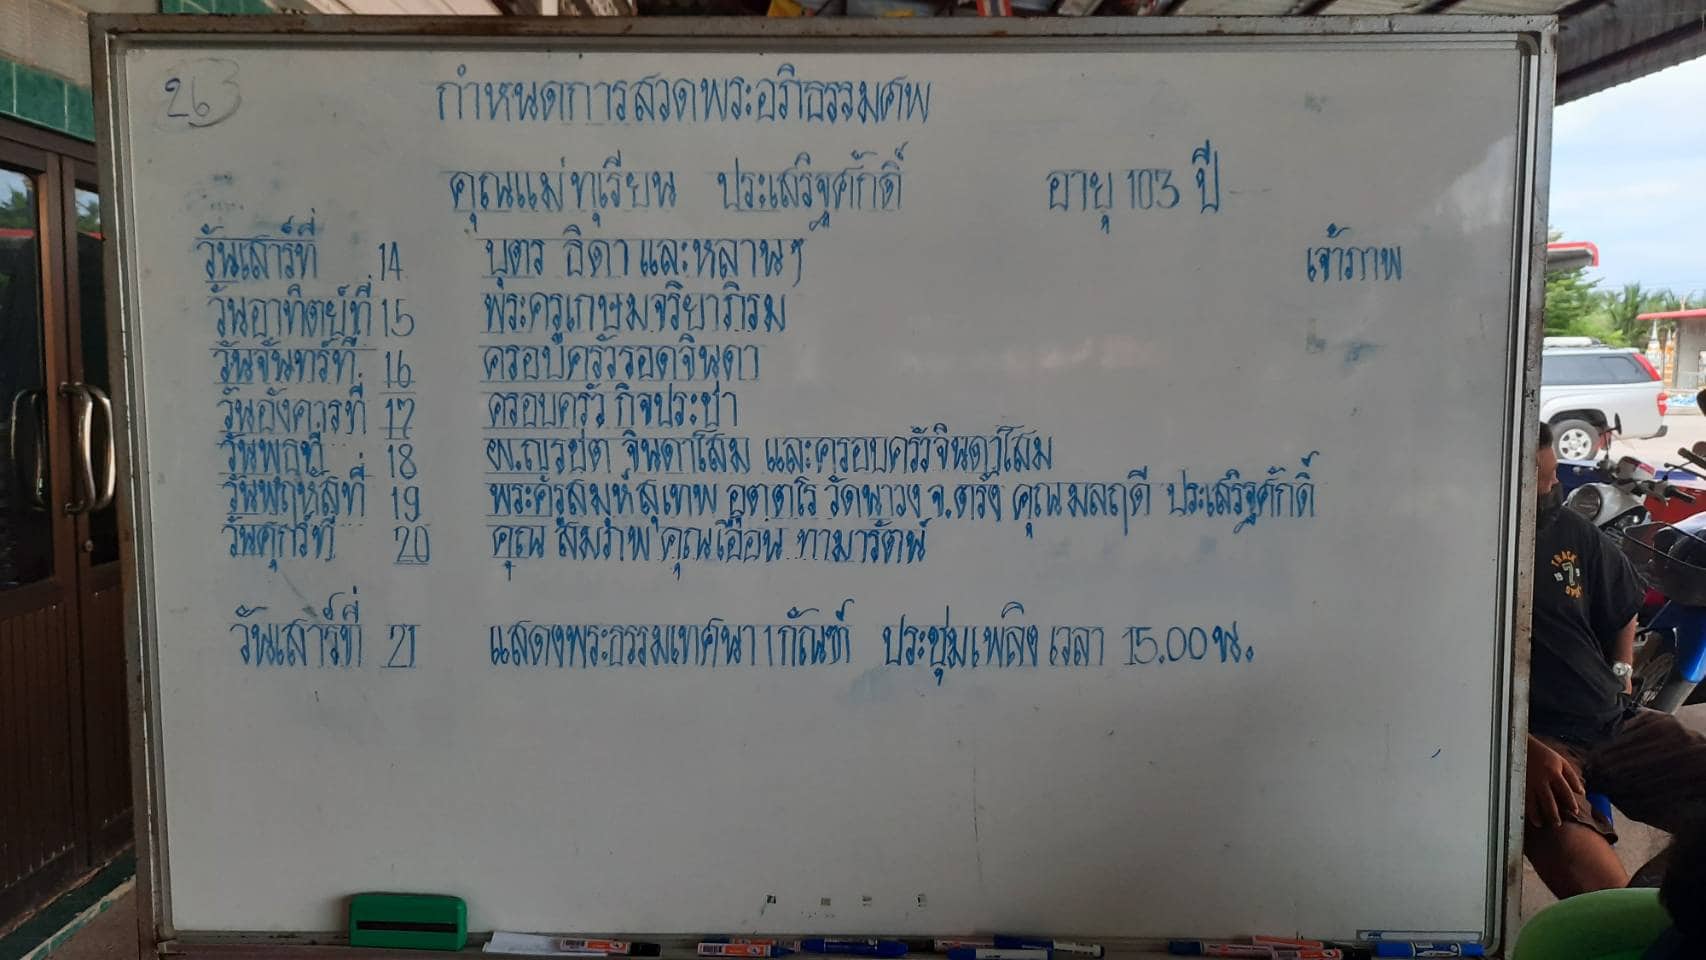 263
กำหนดการสวดพระอภิธรรมศพ
คุณแม่ทุเรียน ประเสริฐศักดิ์ อายุ 103 ปี
วันเสาร์ที่ 14 บุตร ธิดา และหลานๆ เจ้าภาพ
วันอาทิตย์ที่ 15 พระครูเกษมจริยาภิรม
วันจันทร์ที่ 16 ครอบครัวรอดจินดา
วันอังคารที่ 17 ครอบครัว กิจประชา
วันพุธที่ 18 จินดาโสม และครอบครัวจินดาโสม
วันพฤหัสที่ 19 พระครูสมุห์สุเทพ อุตตโร วัดนาวง จ.ตรัง คุณมลฤดี ประเสริฐศักดิ์
วันศุกร์ที่ 20 คุณ สมภพ คุณเอื้อน ทามารัตน์
วันเสาร์ที่ 21 แสดงพระธรรมเทศนา 1 กัณฑ์ ประชุมเพลิง เวลา 15.00 น.